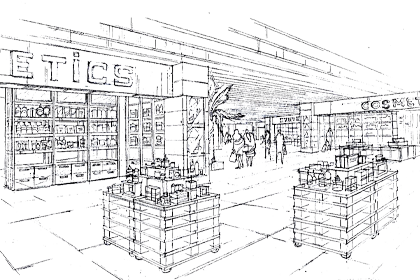 ETICS
COSME